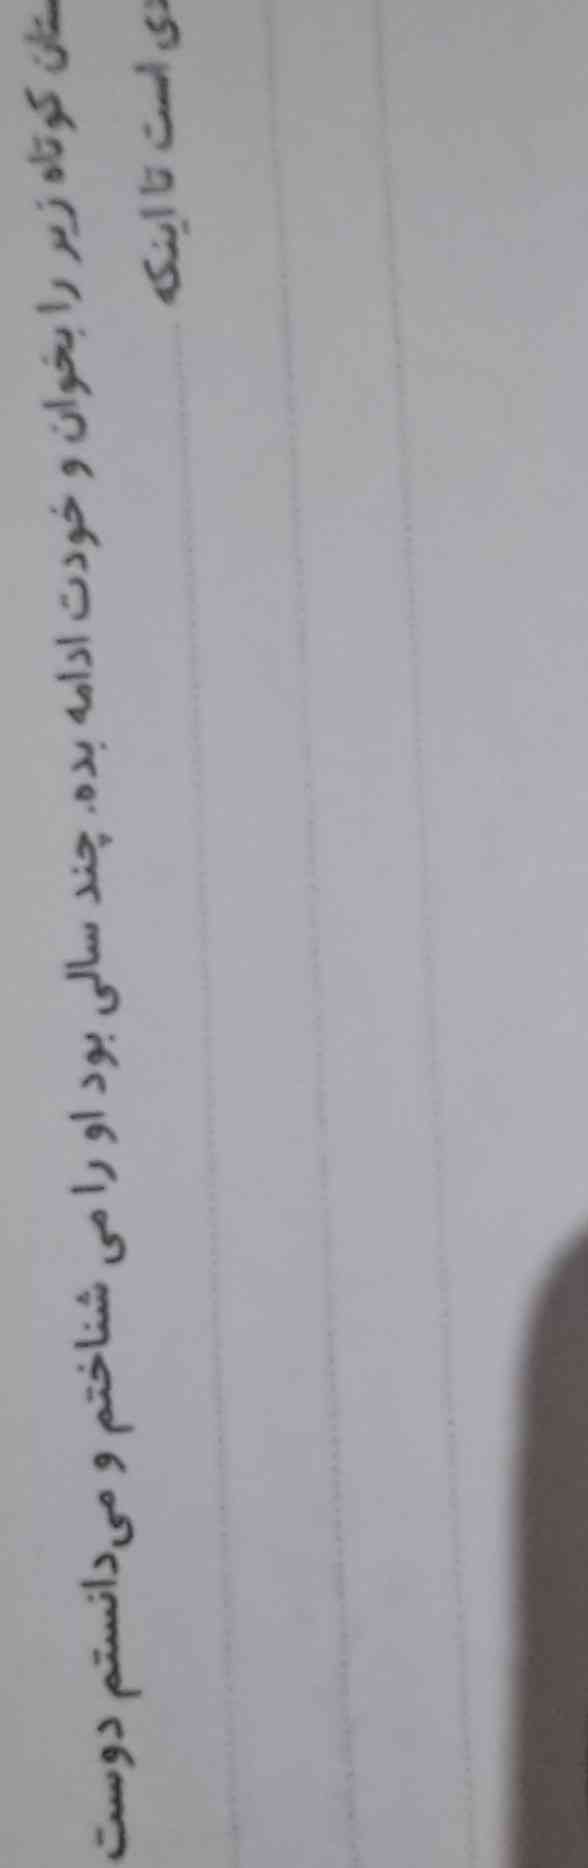 کوتاه زیر را بخوان و خودت ادامه بده. چند سالی بود او را می شناختم و می‌دانستم دوست
است تا اینکه